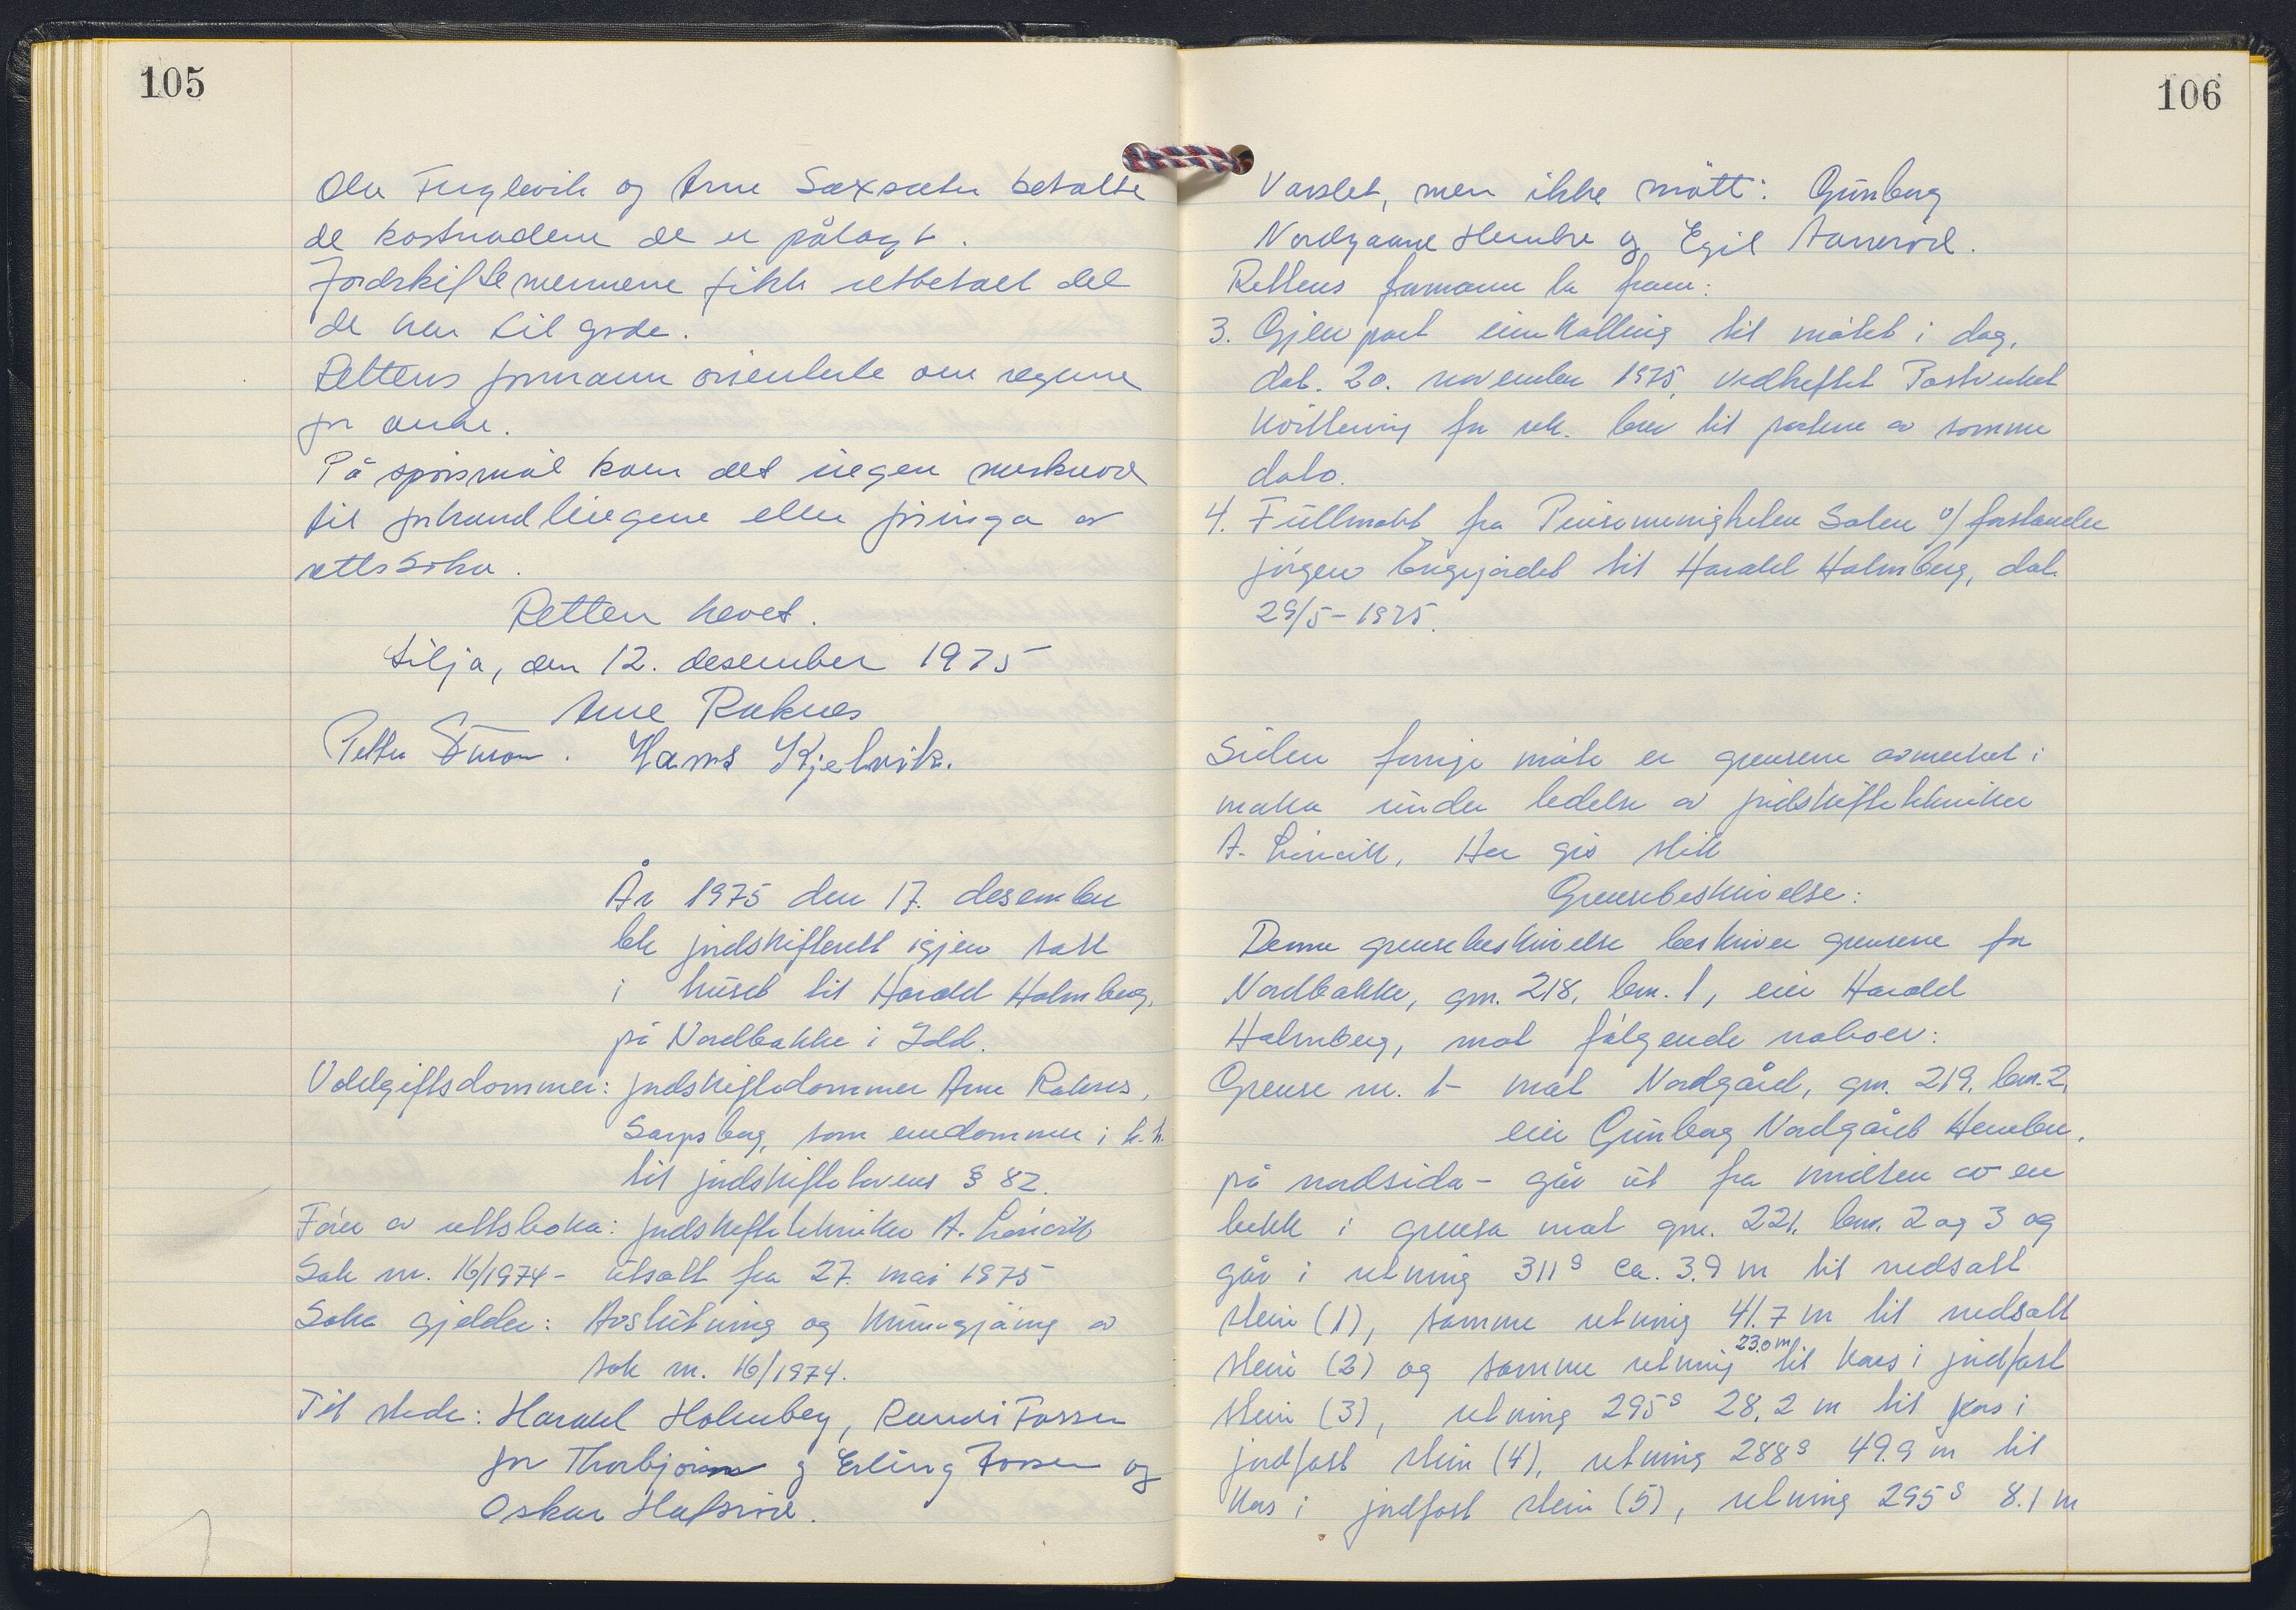 105
Ola Fuglevik og Arne Saxsæter betalte
de kostnadene de er pålagt.
Jordskiftemennene fikk utbetalt det
de har til gode.
Rettens formann orienterte om reglene
for anke.
På spørsmål kom det ingen merknad
til forhandlingene eller føringa av
rettsboka.
Retten hevet.
Lilja, den 12. desember 1975
Arne Raknes
Petter Hans Kjelvik.
År 1975 den 17. desember
ble jordskifterett igjen satt
i huset til Harald Holmberg,
på Nordbakke i Idd.
Voldgiftsdommer: jordskiftedommer Arne Raknes,
Sarpsborg, som enedommer i h.h.
til jordskiftelovens § 82.
Fører av rettsboka: jordskiftetekniker A.
Sak nr. 16/1974 - utsatt fra 27. mai 1975
Saka gjelder: Avslutning og kunngjøring av
sak nr. 16/1974.
Til stede: Harald Holmberg, Randi Fossen
for Thorbjørn og Erling Fossen og
Oskar Hafsrød.
106
Varslet, men ikke møtt: Gunborg
Nordgaard Hembre og Egil
Rettens formann la fram:
3. Gjenpart innkalling til møtet i dag,
dat. 20. november 1975, vedheftet Postverket
kvittering for rek. brev til partene av samme
dato.
4. Fullmakt fra Pinsemenigheten Salen v/ forstander
Jørgen Engejordet til Harald Holmberg, dat.
29/5-1975.
Siden forrige møte er grensene avmerket i
marka under ledelse av jordskiftetekniker
A. Her gis slik
Grensebeskrivelse:
Denne grensebeskrivelse beskriver grensene for
Nordbakke, gnr. 218, bnr. 1, eier Harald
Holmberg, mot følgende naboer:
Grense nr. 1 - mot Nordgård, gnr. 219, bnr. 2,
eier Gunborg Nordgård Hembre,
på nordsida - går ut fra midten av en
bekk i grensa mot gnr. 221, bnr. 2 og 3 og
går i retning 311g ca. 3.9 m til nedsatt
stein (1), samme retning 41.7 m til nedsatt
stein (2) og samme retning 23.0 m til kors i jordfast
stein (3), retning 295g 28.2 m til kors i
jordfast stein (4), retning 288g 49.9 m til
kors i jordfast stein (5), retning 295g 8.1 m